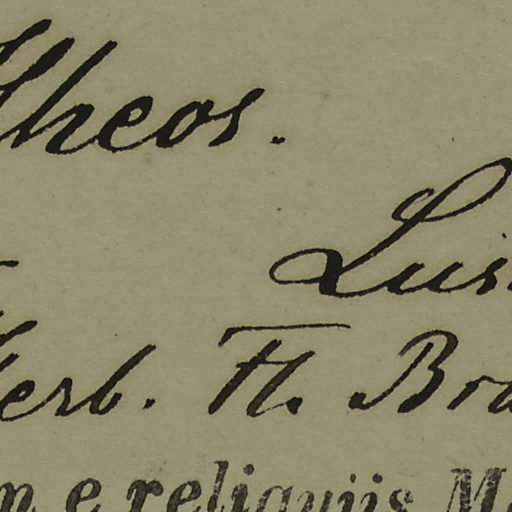 Ilheos.
Lus
Herb. Fl. Bra
m e reliquiis M